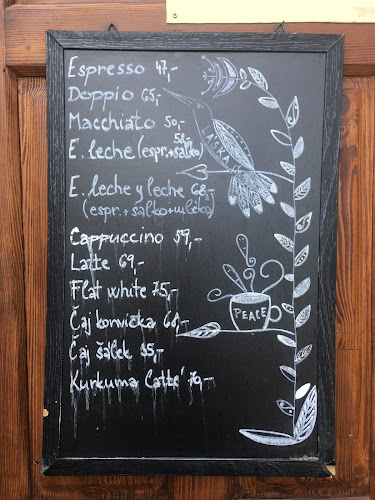 Espresso 47,-
Doppio 65,-
Macchiato 50,-
E. leche (espr.+salko) 58,-
E. leche y leche 68,-
(espr.+salko+mléko)
Cappuccino 59,-
Latte 69,-
Flat white 75,-
Čaj konvička 68,-
Čaj šálek 35,-
Kurkuma latté 79,-
LÁSKA
PEACE